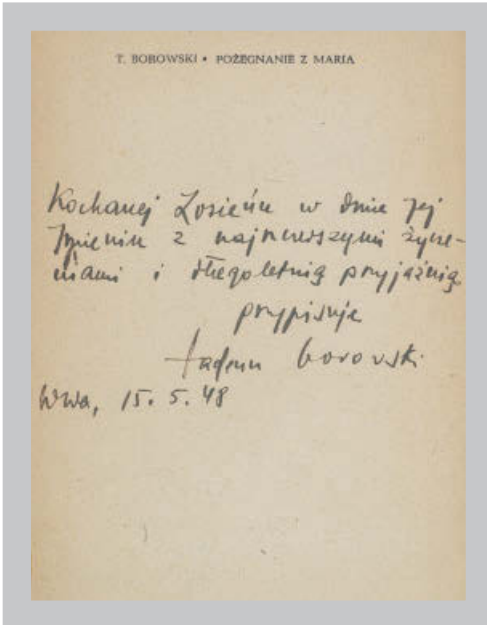 T. BOROWSKI • POŻEGNANIE Z MARIĄ
Kochanej Zosieńce w dniu Jej
Imienin z najszczerszymi życze-
niami i długoletnią przyjaźnią
przypisuje
Tadeusz Borowski
W-wa, 15. 5. 48